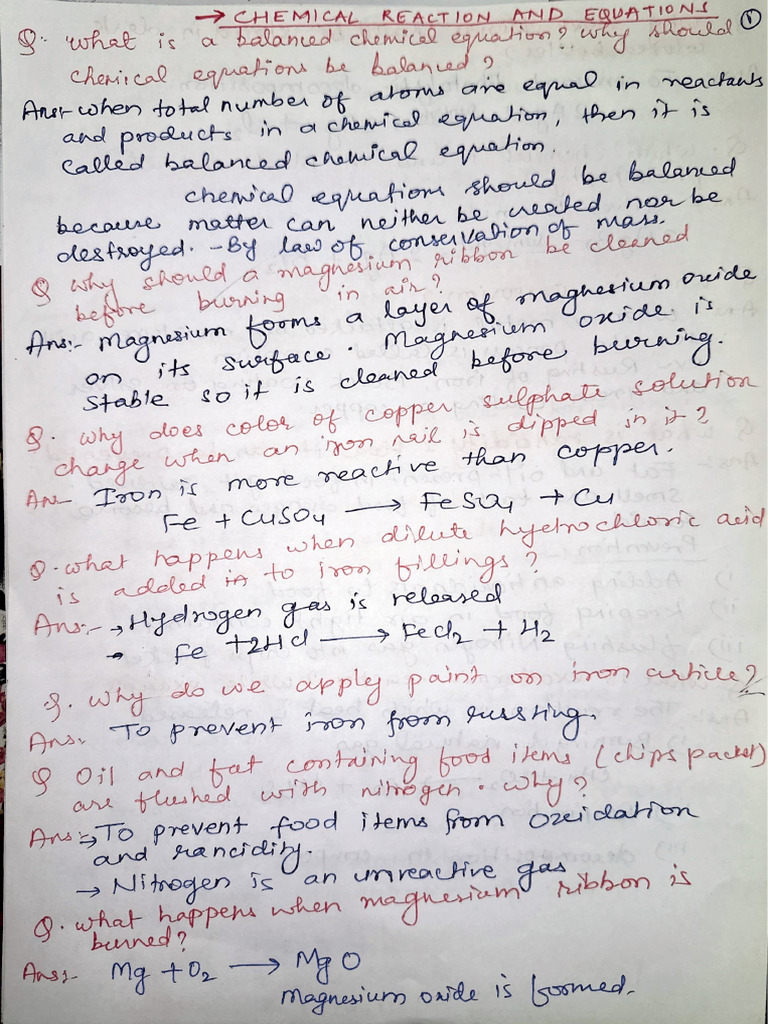 → CHEMICAL REACTION AND EQUATIONS
1
Q. What is a balanced chemical equation? Why should
chemical equations be balanced?
Ans:- when total number of atoms are equal in reactants
and products in a chemical equation, then it is
called balanced chemical equation.
chemical equations should be balanced
because matter can neither be created nor be
destroyed. - By law of conservation of mass.
Q why should a magnesium ribbon be cleaned
before burning in air?
Ans:- Magnesium forms a layer of magnesium oxide
on its surface. Magnesium oxide is
stable so it is cleaned before burning.
Q. why does color of copper sulphate solution
change when an iron nail is dipped in it?
An- Iron is more reactive than copper.
Fe + CuSO4 → FeSO4 + Cu
Q. what happens when dilute hydrochloric acid
is added to iron fillings?
Ans:- → Hydrogen gas is released
→ Fe +2HCl → FeCl2 + H2
Q. why do we apply paint on iron article?
Ans. To prevent iron from russting.
Q Oil and fat containing food items (chips packet)
are flushed with nitrogen. why?
Ans:→ To prevent food items from oxidation
and rancidity.
→ Nitrogen is an unreactive gas
Q. what happens when magnesium ribbon is
burned?
Ans:- Mg + O2 → MgO
Magnesium oxide is formed.